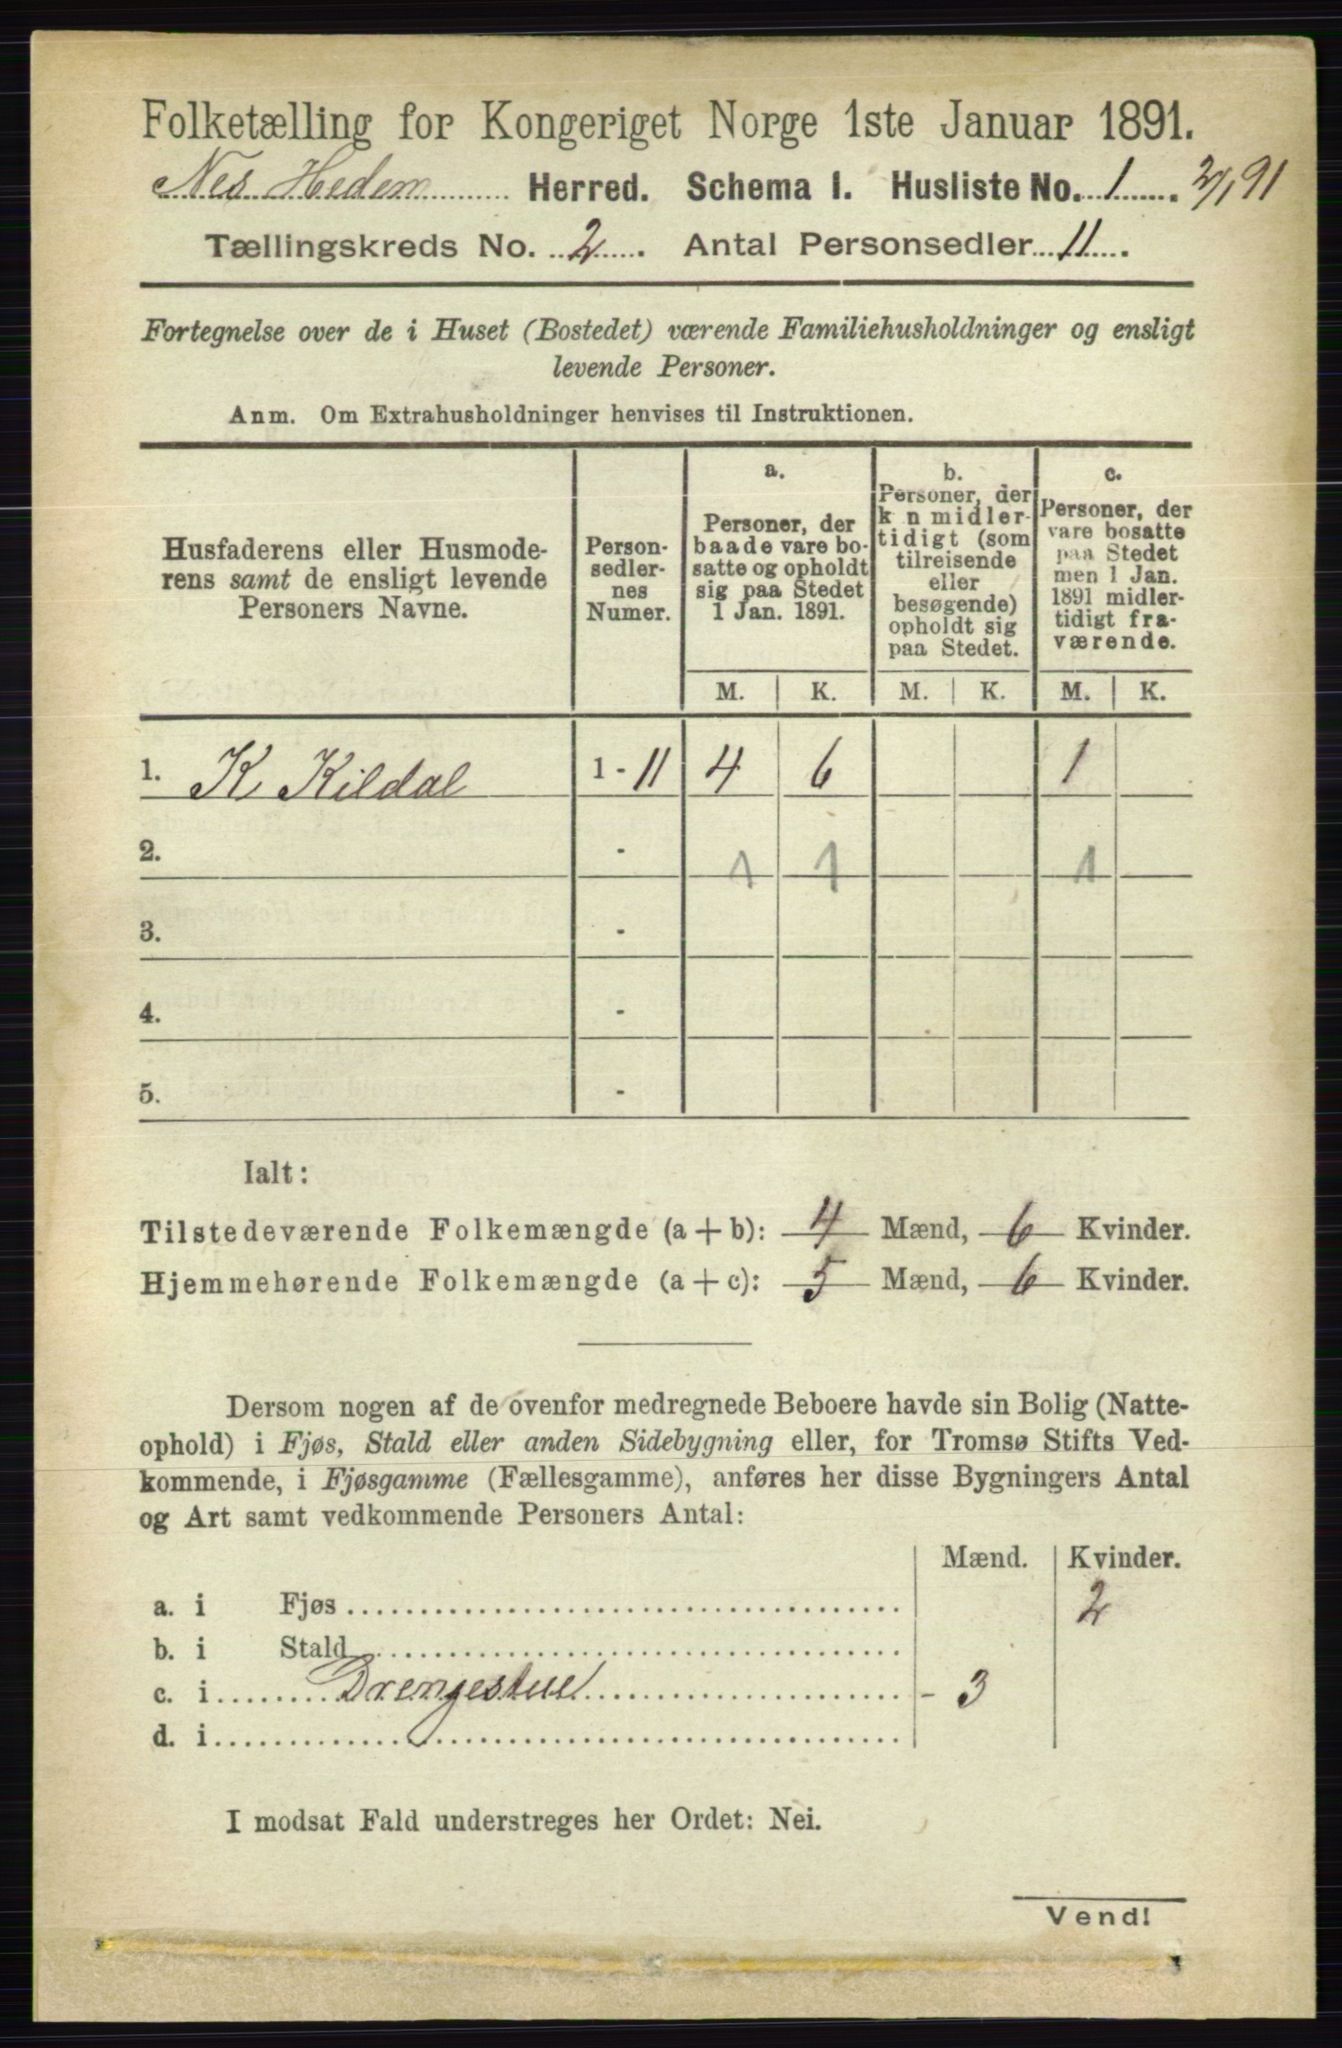 Folketælling for Kongeriget Norge 1ste Januar 1891.
Nes Hedem Herred. Schema 1. Husliste No. 1. 2/1 91
Tællingskreds No. 2. Antal Personsedler 11.
Fortegnelse over de i Huset (Bostedet) værende Familiehusholdninger og ensligt
levende Personer.
Anm. Om Extrahusholdninger henvises til Instruktionen.
Husfaderens eller Husmode-
rens samt de ensligt levende
Personers Navne.
Person-
sedler-
nes
Numer.
a.
Personer, der
baade vare bo-
satte og opholdt
sig paa Stedet
1 Jan. 1891.
b.
Personer, der
k n midler-
tidigt (som
tilreisende
eller
besøgende)
opholdt sig
paa Stedet.
c.
Personer, der
vare bosatte
paa Stedet
men 1 Jan.
1891 midler-
tidigt fra-
værende.
M. K. M. K. M. K.
1. K Kildal 1 - 11 4 6 1
2. - 1 1 1
3. -
4. -
5. -
Ialt:
Tilstedeværende Folkemængde (a + b): 4 Mænd, 6 Kvinder.
Hjemmehørende Folkemængde (a + c): 5 Mænd, 6 Kvinder.
Dersom nogen af de ovenfor medregnede Beboere havde sin Bolig (Natte-
ophold) i Fjøs, Stald eller anden Sidebygning eller, for Tromsø Stifts Ved-
kommende, i Fjøsgamme (Fællesgamme), anføres her disse Bygningers Antal
og Art samt vedkommende Personers Antal:
Mænd. Kvinder.
a. i Fjøs 2
b. i Stald
c. i Drengestue - 3
d. i
I modsat Fald understreges her Ordet: Nei.
Vend!